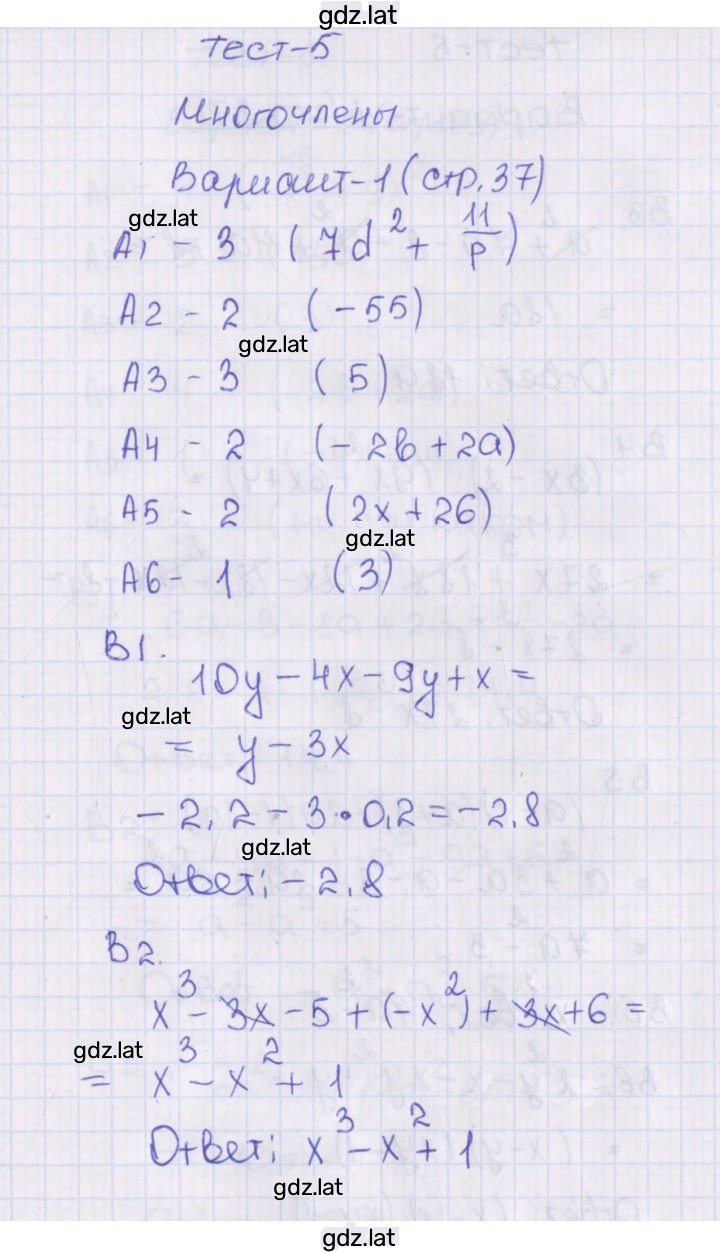 gdz.lat
тест-5
Многочлены
Вариант-1 (стр. 37)
gdz.lat
А1 - 3 (7d² + 11/p)
А2 - 2 (-55)
gdz.lat
А3 - 3 (5)
А4 - 2 (-2b + 2a)
А5 - 2 (2x + 26)
gdz.lat
А6 - 1 (3)
В1.
10y - 4x - 9y + x =
gdz.lat
= y - 3x
-2,2 - 3·0,2 = -2,8
gdz.lat
Ответ: -2,8
В2.
x³ - 3x - 5 + (-x²) + 3x + 6 =
gdz.lat
= x³ - x² + 1
Ответ: x³ - x² + 1
gdz.lat
gdz.lat